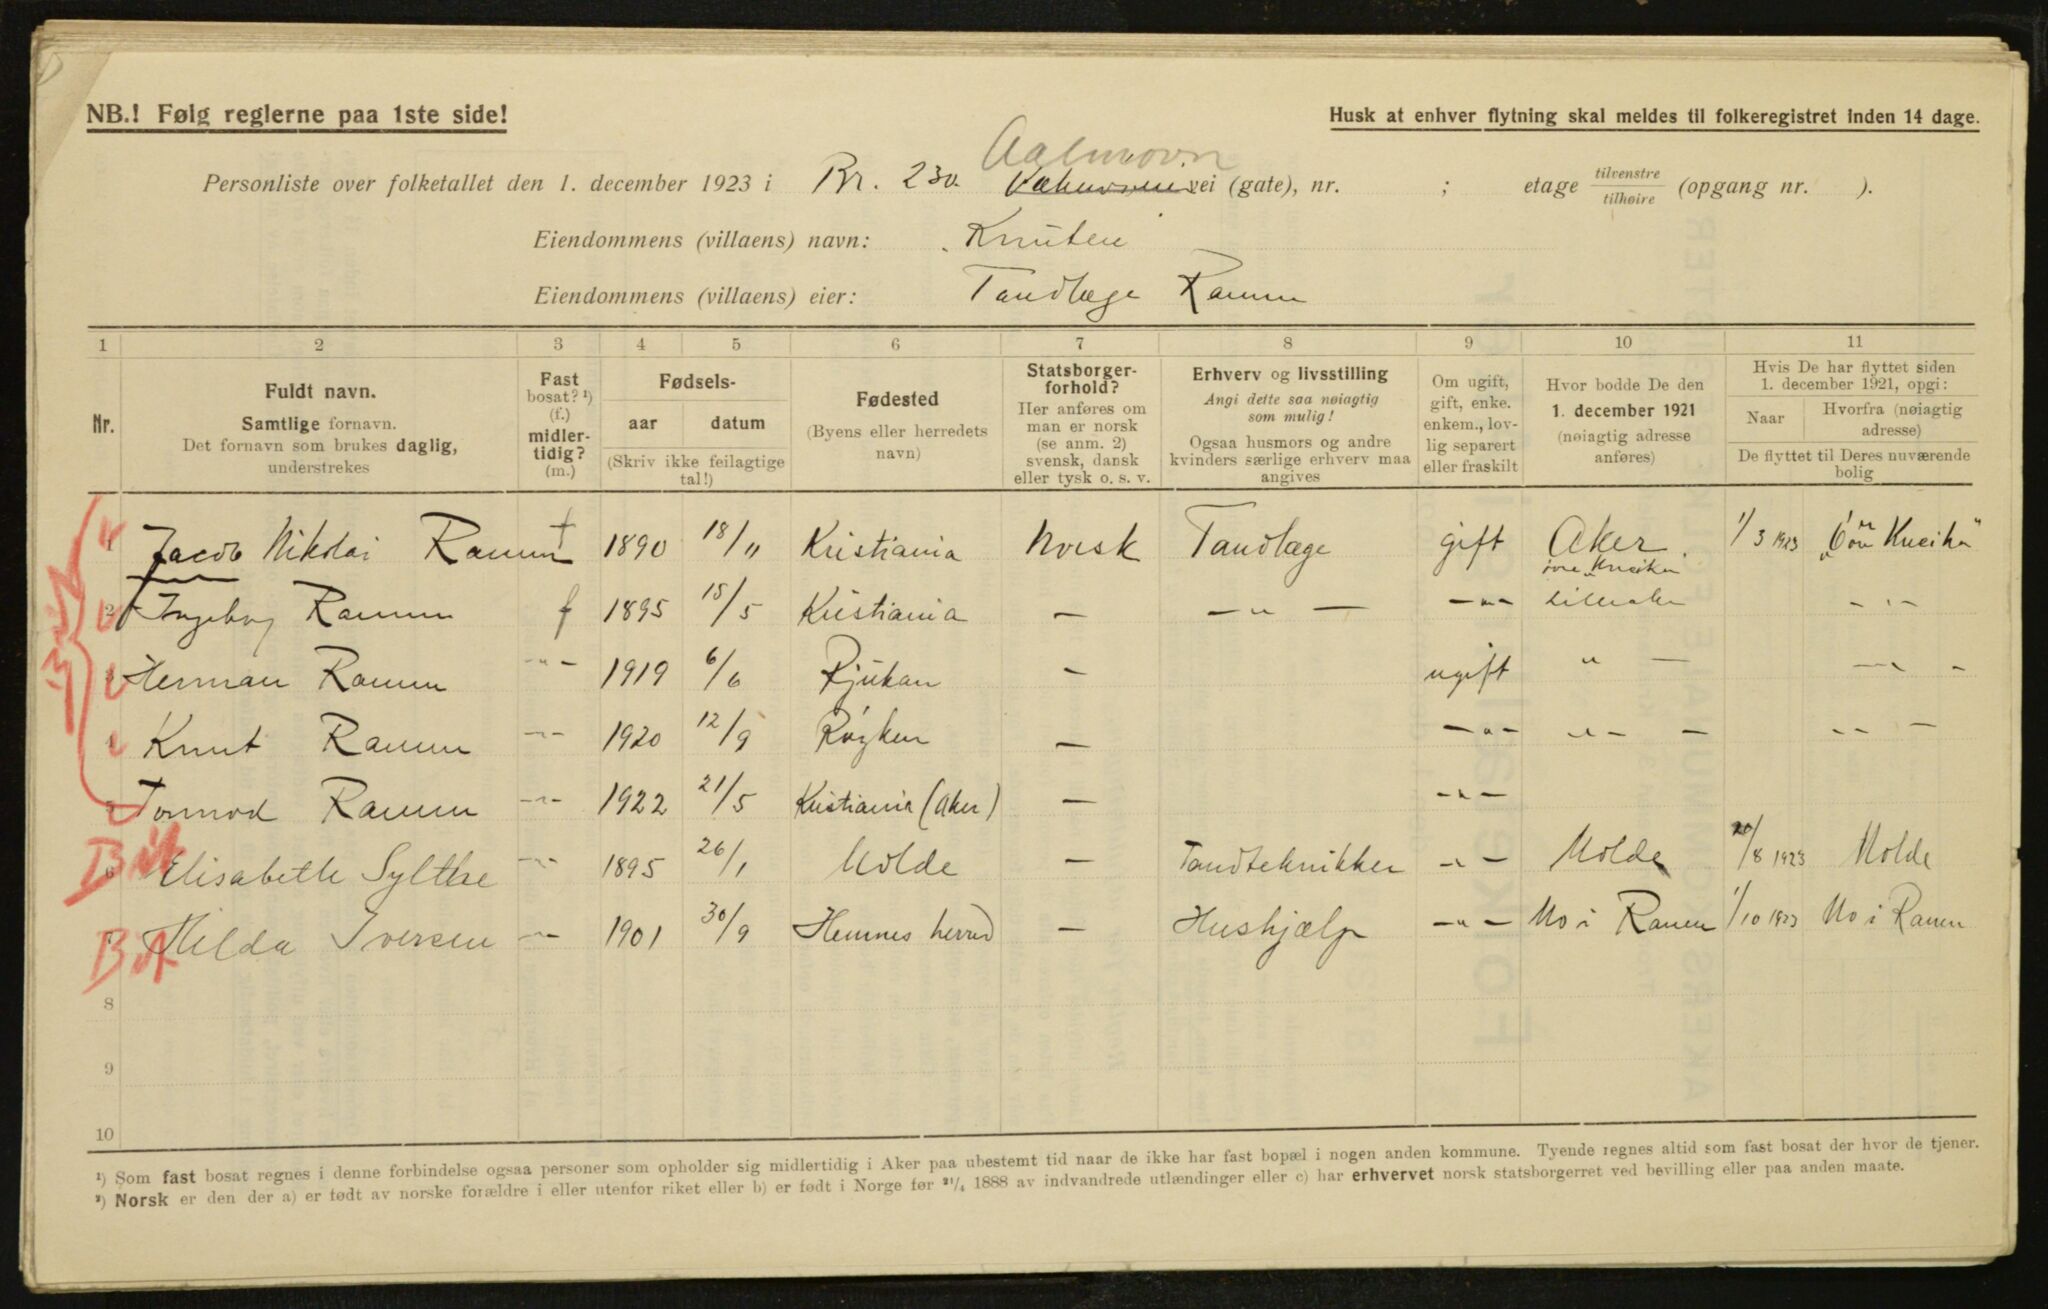 NB.! Følg reglerne paa 1ste side!
Husk at enhver flytning skal meldes til folkeregistret inden 14 dage.
Personliste over folketallet den 1. december 1923 i Br. 230. vei (gate), nr. ; etage tilvenstre/tilhøire (opgang nr. ).
Eiendommens (villaens) navn: Knuten
Eiendommens (villaens) eier: Tandlæge Ramm
1 2 3 4 5 6 7 8 9 10 11
Nr.
Fuldt navn.
Samtlige fornavn.
Det fornavn som brukes daglig,
understrekes
Fast
bosat? ¹)
(f.)
midler-
tidig?
(m.)
Fødsels-
aar datum
(Skriv ikke feilagtige
tal!)
Fødested
(Byens eller herredets
navn)
Statsborger-
forhold?
Her anføres om
man er norsk
(se anm. 2)
svensk, dansk
eller tysk o. s. v.
Erhverv og livsstilling
Angi dette saa nøiagtig
som mulig!
Ogsaa husmors og andre
kvinders særlige erhverv maa
angives
Om ugift,
gift, enke.
enkem., lov-
lig separert
eller fraskilt
Hvor bodde De den
1. december 1921
(nøiagtig adresse
anføres)
Hvis De har flyttet siden
1. december 1921, opgi:
Naar
Hvorfra (nøiagtig
adresse)
De flyttet til Deres nuværende
bolig
1 Jacob Nikolai Ramm f 1890 18/11 Kristiania Norsk Tandlæge gift Aker. 1/3 1923
2 Ingeborg Ramm f 1895 15/5 Kristiania — — „ — — „ — Lilleaker — „ —
3 Herman Ramm — „ — 1919 6/6 Rjukan — ugift „ — — „ —
4 Knut Ramm — „ — 1920 12/9 Røyken — — „ — — „ — — — „ —
5 Tormod Ramm — „ — 1922 21/5 Kristiania (Aker) — — „ —
6 Elisabeth Sylthe — „ — 1895 26/1 Molde — Tandtekniker — „ — Molde 20/8 1923 Molde
7 Hilda Iversen — „ — 1901 30/9 Hemnes herred — Hushjælp — „ — Mo i Ranen 1/10 1923 Mo i Ranen
8
9
10
¹) Som fast bosat regnes i denne forbindelse ogsaa personer som opholder sig midlertidig i Aker paa ubestemt tid naar de ikke har fast bopæl i nogen anden kommune. Tyende regnes altid som fast bosat der hvor de tjener.
²) Norsk er den der a) er født av norske forældre i eller utenfor riket eller b) er født i Norge før 21/4 1888 av indvandrede utlændinger eller c) har erhvervet norsk statsborgerret ved bevilling eller paa anden maate.